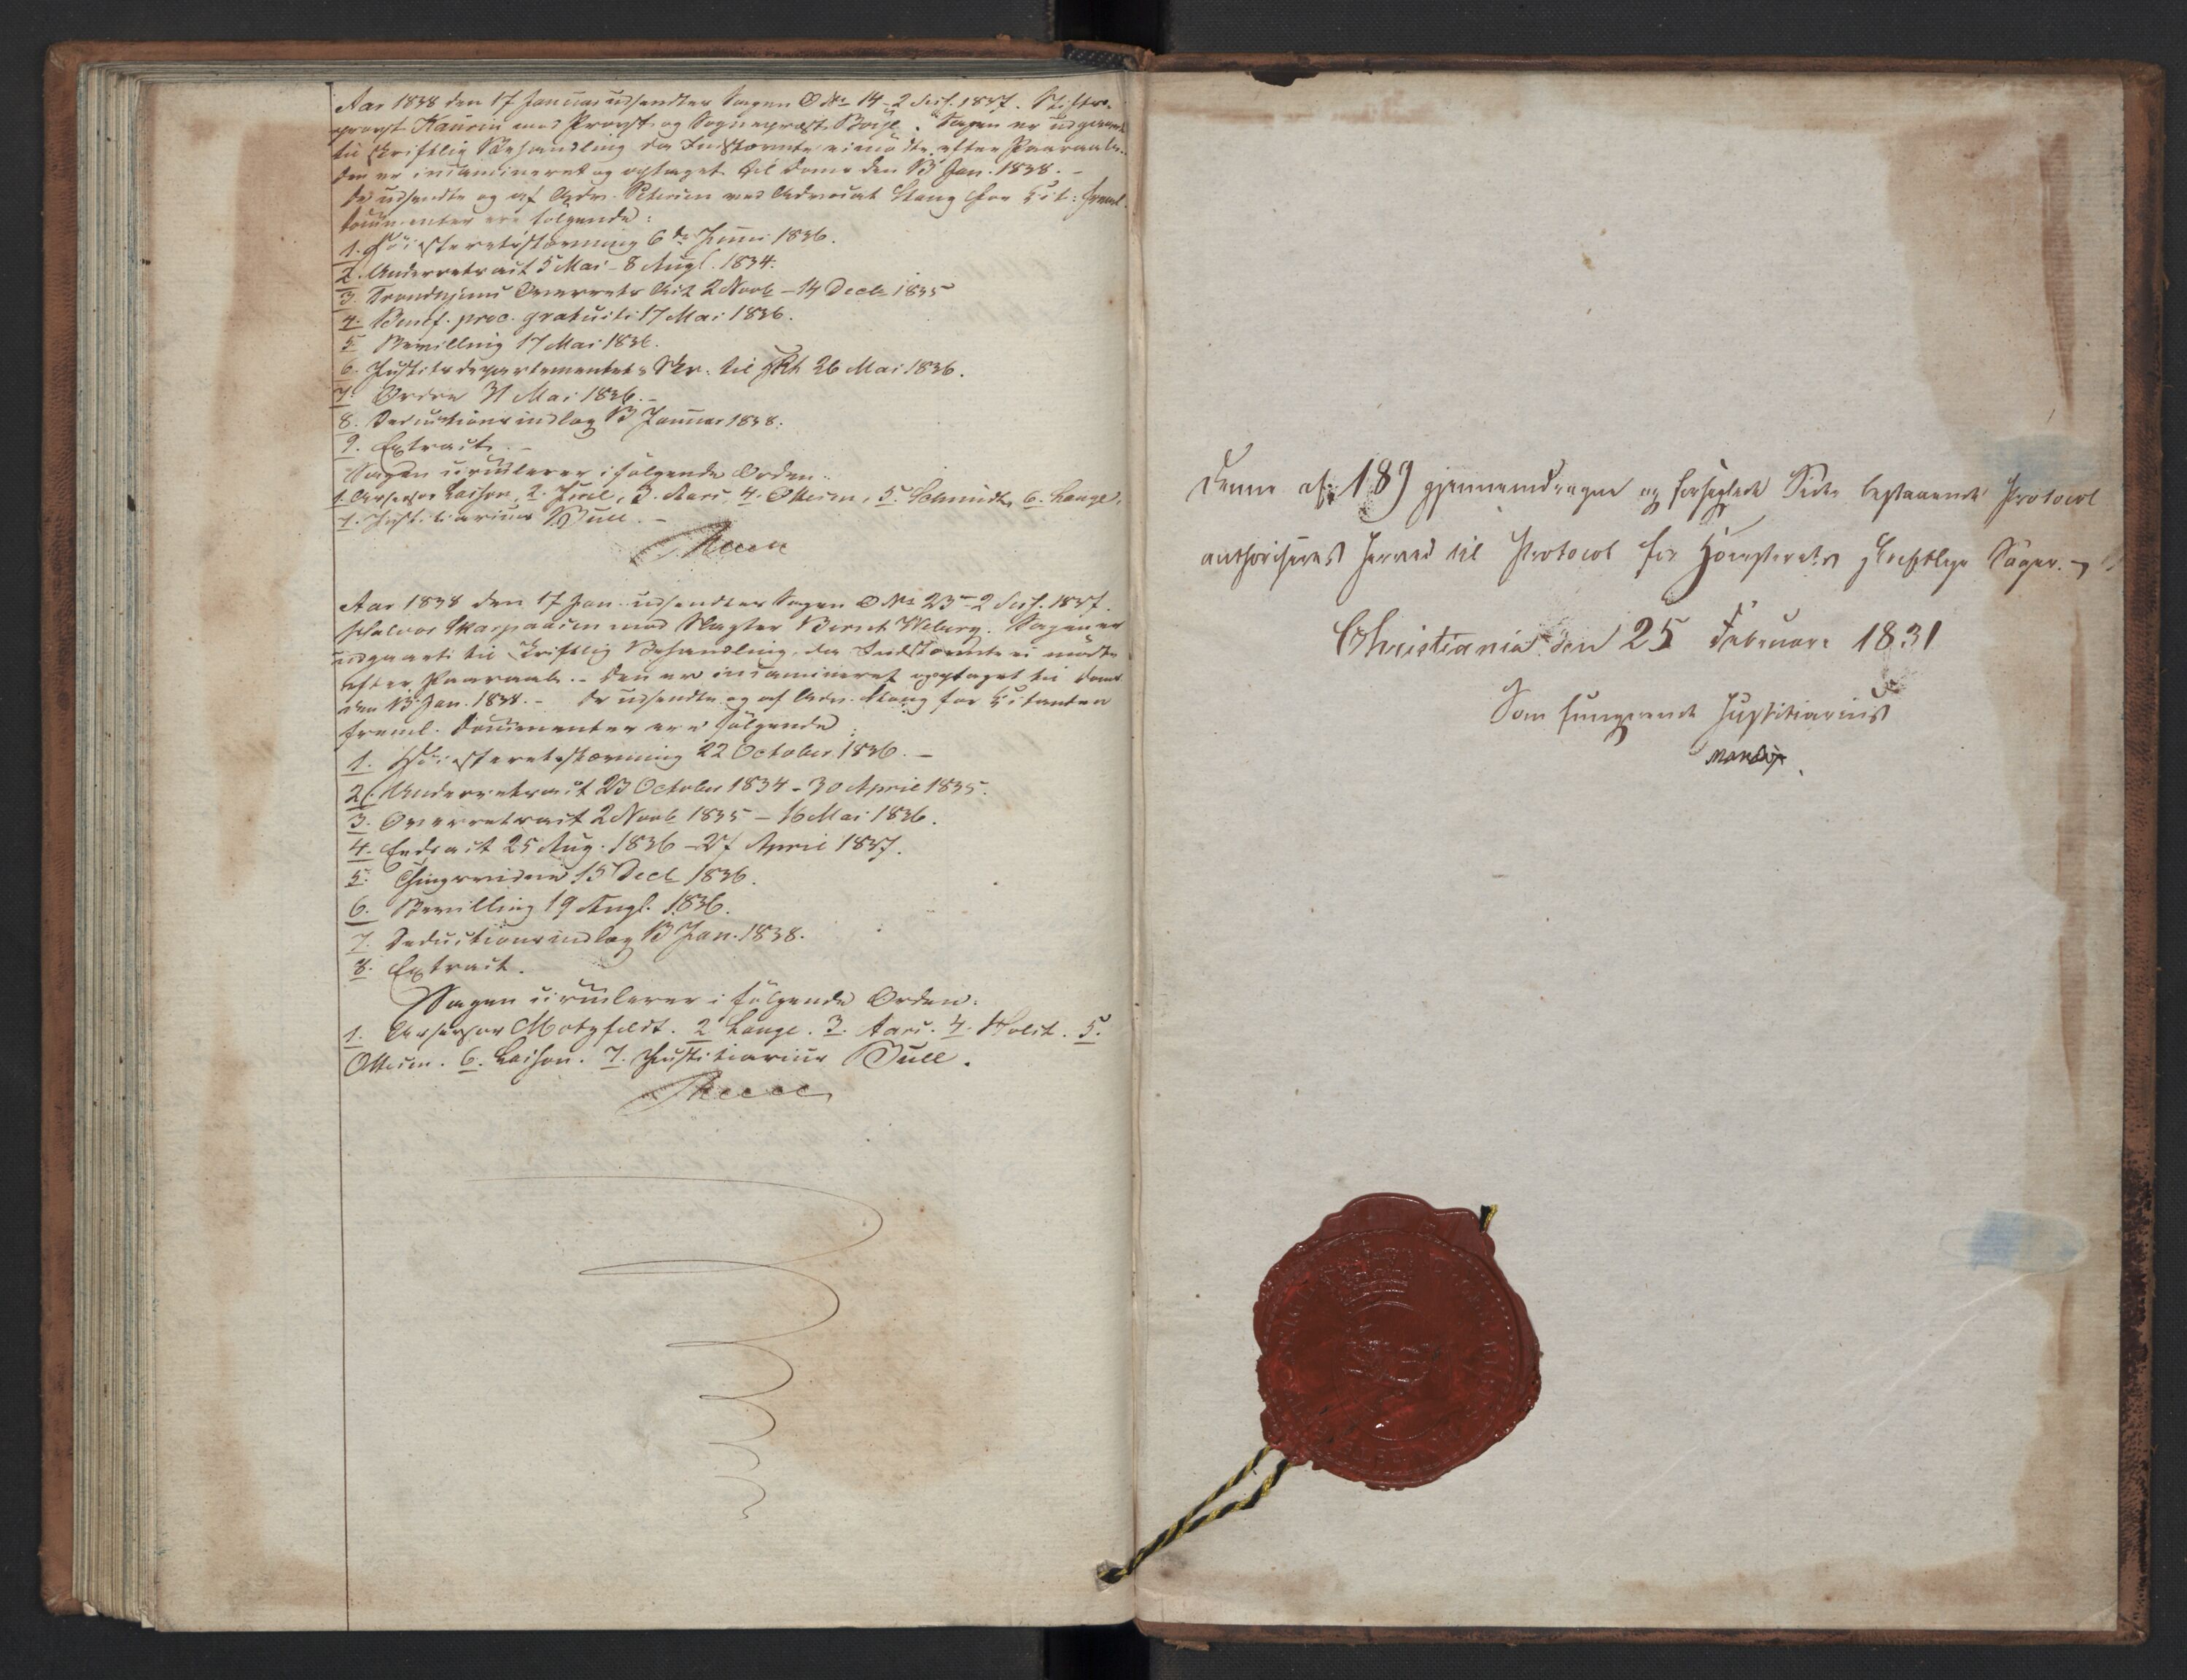 Aar 1838 den 17 Januar udsendtes Sagen O No 14 - 2 Sess. 1837. Stifts-
provst Kaurin mod Provst og Sognepræst Boye. Sagen er udgaaet
til skriftlig Behandling da Indstævnte ei mødte efter Paaraab.
Den er incamineret og optaget til Doms den 13 Jan. 1838. -
De udsendte og af Adv. ved Advocat Stang for Cit: freml.
Documenter ere følgende:
1. Høiesteretsstævning 6te Juni 1836.
2. Underretsact 5 Mai - 8 Augl. 1834.
3. Trondhjems Overrets Act 2 Novb - 14 Decb 1835
4. Benef. proc. gratuiti 17 Mai 1836.
5. Bevilling 17 Mai 1836.
6. Justitsdepartementets Skr. til 26 Mai 1836.
7. Ordre 31 Mai 1836. -
8. Deductionsindlæg 13 Januar 1838.
9. Extract. -
Sagen circulerer i følgende Orden.
1. Assessor Lasson, 2. Juel, 3. Aars, 4. Ottesen, 5. Schmidt, 6. Lange,
7. Justitiarius Bull. -
Aar 1838 den 17 Jan. udsendtes Sagen O No 23 - 2 Sess. 1837.
Halvor mod Slagter Bernt Wiberg. Sagen er
udgaaet til skriftlig Behandling, da Indstævnte ei mødte
efter Paaraab. - Den er incamineret og optaget til Doms
den 13 Jan. 1838. - De udsendte og af Adv. Stang for Citanten
freml. Documenter ere følgende
1. Høiesteretsstævning 22 October 1836. -
2. Underretsact 23 October 1834 - 30 April 1835.
3. Overretsact 2 Novb 1835 - 16 Mai 1836.
4. Eedsact 25 Aug. 1836 - 27 April 1837.
5. Thingsvidne 15 Decb 1836.
6. Bevilling 19 Augl. 1836.
7. Deductionsindlæg 13 Jan. 1838.
8. Extract.
Sagen circulerer i følgende Orden:
1. Assessor Motzfeldt. 2. Lange. 3. Aars. 4. Holst. 5.
Ottesen. 6. Lasson. 7. Justitiarius Bull.
Denne af 189 gjennemdragne og forseglede Sider bestaaende Protocol
authoriseres herved til Protocol for Høiesterets skriftlige Sager. -
Christiania den 25 Februar 1831
Som fungerende Justitiarius